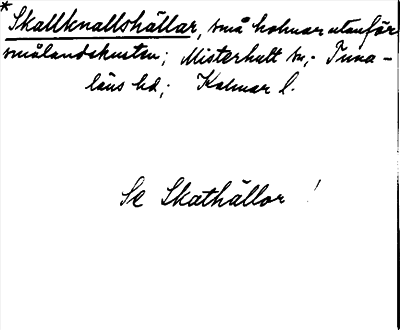 * Skallknallshällar, små holmar utanför
smålandskusten; Misterhult sn,- Tuna-
läns hd; Kalmar l.
Se Skathällor!